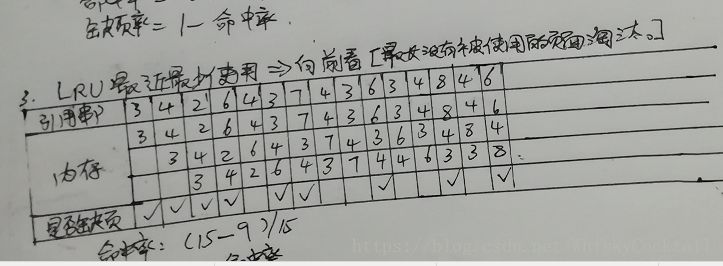 缺页率 = 1 - 命中率.
3. LRU 最近最少使用 ⇒ 向前看 [最长没有被使用的页面淘汰。]
引用串 3 4 2 6 4 3 7 4 3 6 3 4 8 4 6
3 4 2 6 4 3 7 4 3 6 3 4 8 4 6
内存 3 4 2 6 4 3 7 4 3 6 3 4 8 4
3 4 2 6 4 3 7 4 4 6 3 3 8
是否缺页 ✓ ✓ ✓ ✓ ✓ ✓ ✓ ✓ ✓
命中率: (15-9)/15